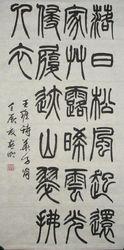 落日松風起還
家草露晞雲光
侵履跡山翠拂
人衣
王維詩華子岡